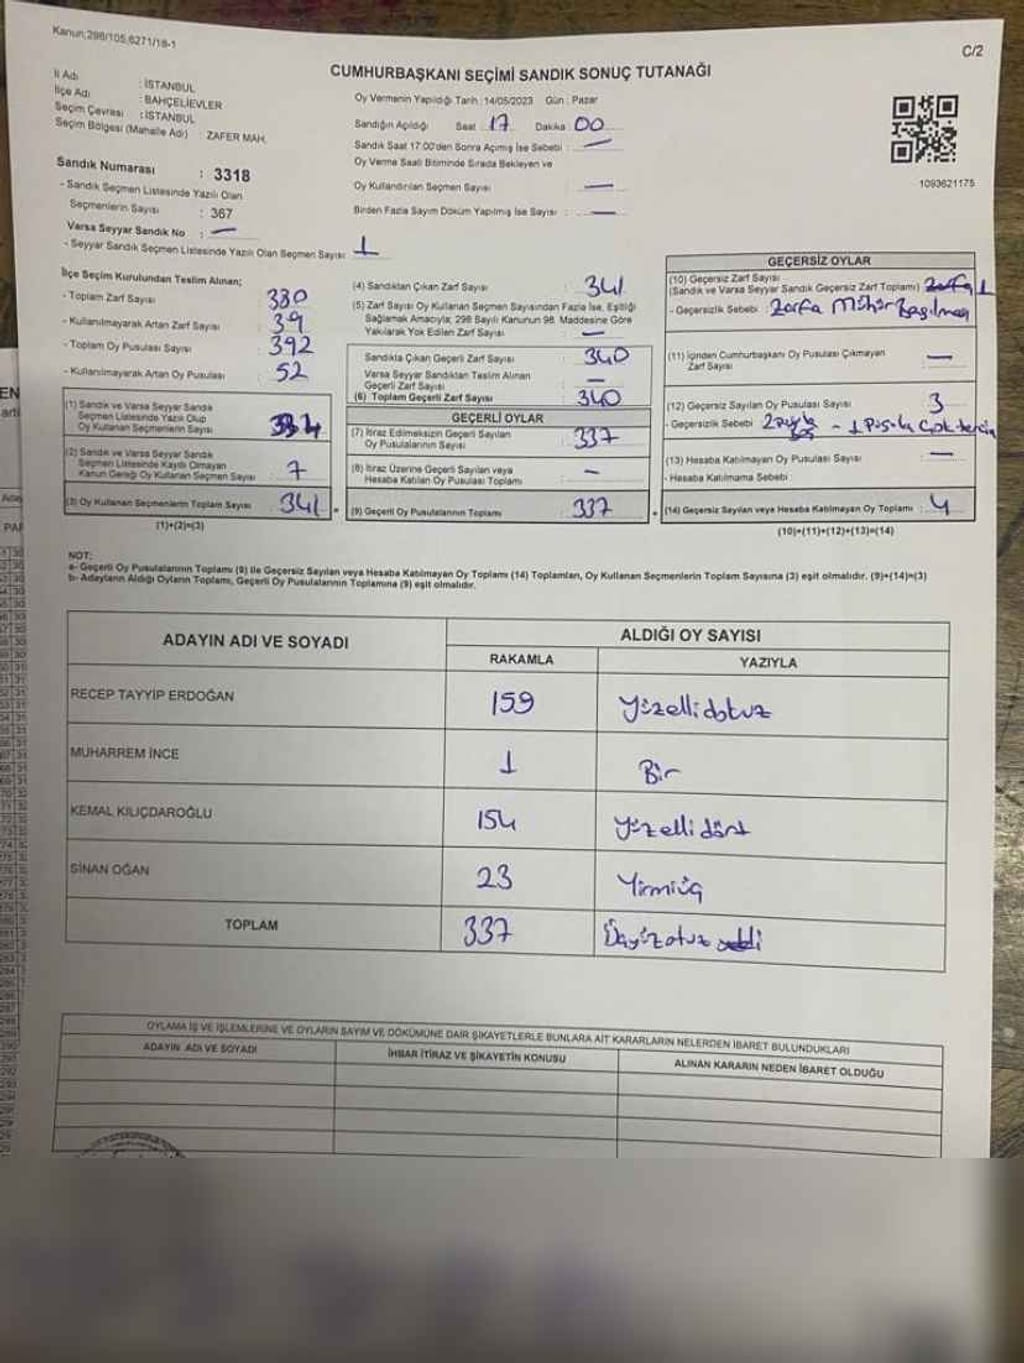 Kanun;298/105,6271/18-1
C/2
CUMHURBAŞKANI SEÇİMİ SANDIK SONUÇ TUTANAĞI
İl Adı : İSTANBUL
İlçe Adı : BAHÇELİEVLER
Seçim Çevresi : İSTANBUL
Seçim Bölgesi (Mahalle Adı) : ZAFER MAH.
Sandık Numarası : 3318
- Sandık Seçmen Listesinde Yazılı Olan
Seçmenlerin Sayısı : 367
Varsa Seyyar Sandık No : —
- Seyyar Sandık Seçmen Listesinde Yazılı Olan Seçmen Sayısı:
Oy Vermenin Yapıldığı Tarih : 14/05/2023 Gün : Pazar
Sandığın Açıldığı Saat 17 Dakika 00
Sandık Saat 17:00'den Sonra Açımış İse Sebebi : —
Oy Verme Saati Bitiminde Sırada Bekleyen ve
Oy Kullandırılan Seçmen Sayısı : —
Birden Fazla Sayım Döküm Yapılmış İse Sayısı : —
1093621175
İlçe Seçim Kurulundan Teslim Alınan;
- Toplam Zarf Sayısı : 380
- Kullanılmayarak Artan Zarf Sayısı : 39
- Toplam Oy Pusulası Sayısı : 392
- Kullanılmayarak Artan Oy Pusulası : 52
(1) Sandık ve Varsa Seyyar Sandık
Seçmen Listesinde Yazılı Olup
Oy Kullanan Seçmenlerin Sayısı : 334
(2) Sandık ve Varsa Seyyar Sandık
Seçmen Listesinde Kayıtlı Olmayan
Kanun Gereği Oy Kullanan Seçmen Sayısı : 7
(3) Oy Kullanan Seçmenlerin Toplam Sayısı 341
(1)+(2)=(3)
(4) Sandıktan Çıkan Zarf Sayısı : 341
(5) Zarf Sayısı Oy Kullanan Seçmen Sayısından Fazla İse, Eşitliği
Sağlamak Amacıyla; 298 Sayılı Kanunun 98. Maddesine Göre
Yakılarak Yok Edilen Zarf Sayısı : —
Sandıkta Çıkan Geçerli Zarf Sayısı : 340
Varsa Seyyar Sandıktan Teslim Alınan
Geçerli Zarf Sayısı : —
(6) Toplam Geçerli Zarf Sayısı : 340
GEÇERLİ OYLAR
(7) İtiraz Edilmeksizin Geçerli Sayılan
Oy Pusulalarının Sayısı : 337
(8) İtiraz Üzerine Geçerli Sayılan veya
Hesaba Katılan Oy Pusulası Toplamı : —
(9) Geçerli Oy Pusulalarının Toplamı : 337
GEÇERSİZ OYLAR
(10) Geçersiz Zarf Sayısı
(Sandık ve Varsa Seyyar Sandık Geçersiz Zarf Toplamı) 1
- Geçersizlik Sebebi : Zarfa Mühür Basılmas
(11) İçinden Cumhurbaşkanı Oy Pusulası Çıkmayan
Zarf Sayısı : —
(12) Geçersiz Sayılan Oy Pusulası Sayısı : 3
- Geçersizlik Sebebi - 1 Pusula Çok tercih
(13) Hesaba Katılmayan Oy Pusulası Sayısı : —
- Hesaba Katılmama Sebebi
(14) Geçersiz Sayılan veya Hesaba Katılmayan Oy Toplamı : 4
(10)+(11)+(12)+(13)=(14)
NOT:
a- Geçerli Oy Pusulalarının Toplamı (9) ile Geçersiz Sayılan veya Hesaba Katılmayan Oy Toplamı (14) Toplamları, Oy Kullanan Seçmenlerin Toplam Sayısına (3) eşit olmalıdır. (9)+(14)=(3)
b- Adayların Aldığı Oyların Toplamı, Geçerli Oy Pusulalarının Toplamına (9) eşit olmalıdır.
ADAYIN ADI VE SOYADI
ALDIĞI OY SAYISI
RAKAMLA YAZIYLA
RECEP TAYYİP ERDOĞAN 159 Yüzellidokuz
MUHARREM İNCE 1 Bir
KEMAL KILIÇDAROĞLU 154 Yüzellidört
SİNAN OĞAN 23 Yirmiüç
TOPLAM 337 Üçyüzotuz yedi
OYLAMA İŞ VE İŞLEMLERİNE VE OYLARIN SAYIM VE DÖKÜMÜNE DAİR ŞİKAYETLERLE BUNLARA AİT KARARLARIN NELERDEN İBARET BULUNDUKLARI
ADAYIN ADI VE SOYADI
İHBAR İTİRAZ VE ŞİKAYETİN KONUSU
ALINAN KARARIN NEDEN İBARET OLDUĞU